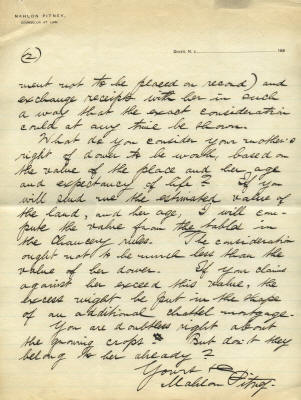 MAHLON PITNEY,
COUNSELOR AT LAW.
Dover, N. J., 188
(2)
ment not to be placed on record) and
exchange receipts with her in such
a way that the exact consideration
could at any time be shown.
What do you consider your mother's
right of dower to be worth, based on
the value of the place and her age
and expectancy of life? If you
will send me the estimated value of
the land, and her age, I will com-
pute the value from the tables in
the Chancery rules. The consideration
ought not to be much less than the
value of her dower. If your claims
against her exceed this value, the
excess might be put in the shape
of an additional chattel mortgage.
You are doubtless right about
the growing crops. But don't they
belong to her already?
Yours
Mahlon Pitney.